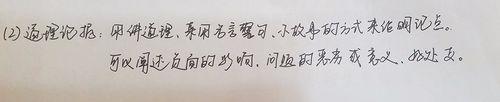 (2)道理论据:用讲道理、采用名言警句、小故事的方式来证明论点。
可以阐述负面的影响、问题的危害或意义、好处等。